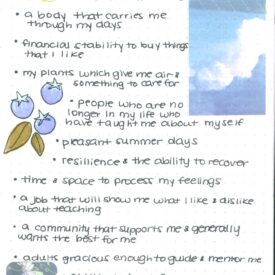 • a body that carries me
through my days
• financial stability to buy things
that I like
• my plants which give me air &
something to care for
• people who are no
longer in my life who
have taught me about myself
• pleasant summer days
• resillience & the ability to recover
• time & space to process my feelings
• a job that will show me what i like & dislike
about teaching
• a community that supports me & generally
wants the best for me
• adults gracious enough to guide & mentor me